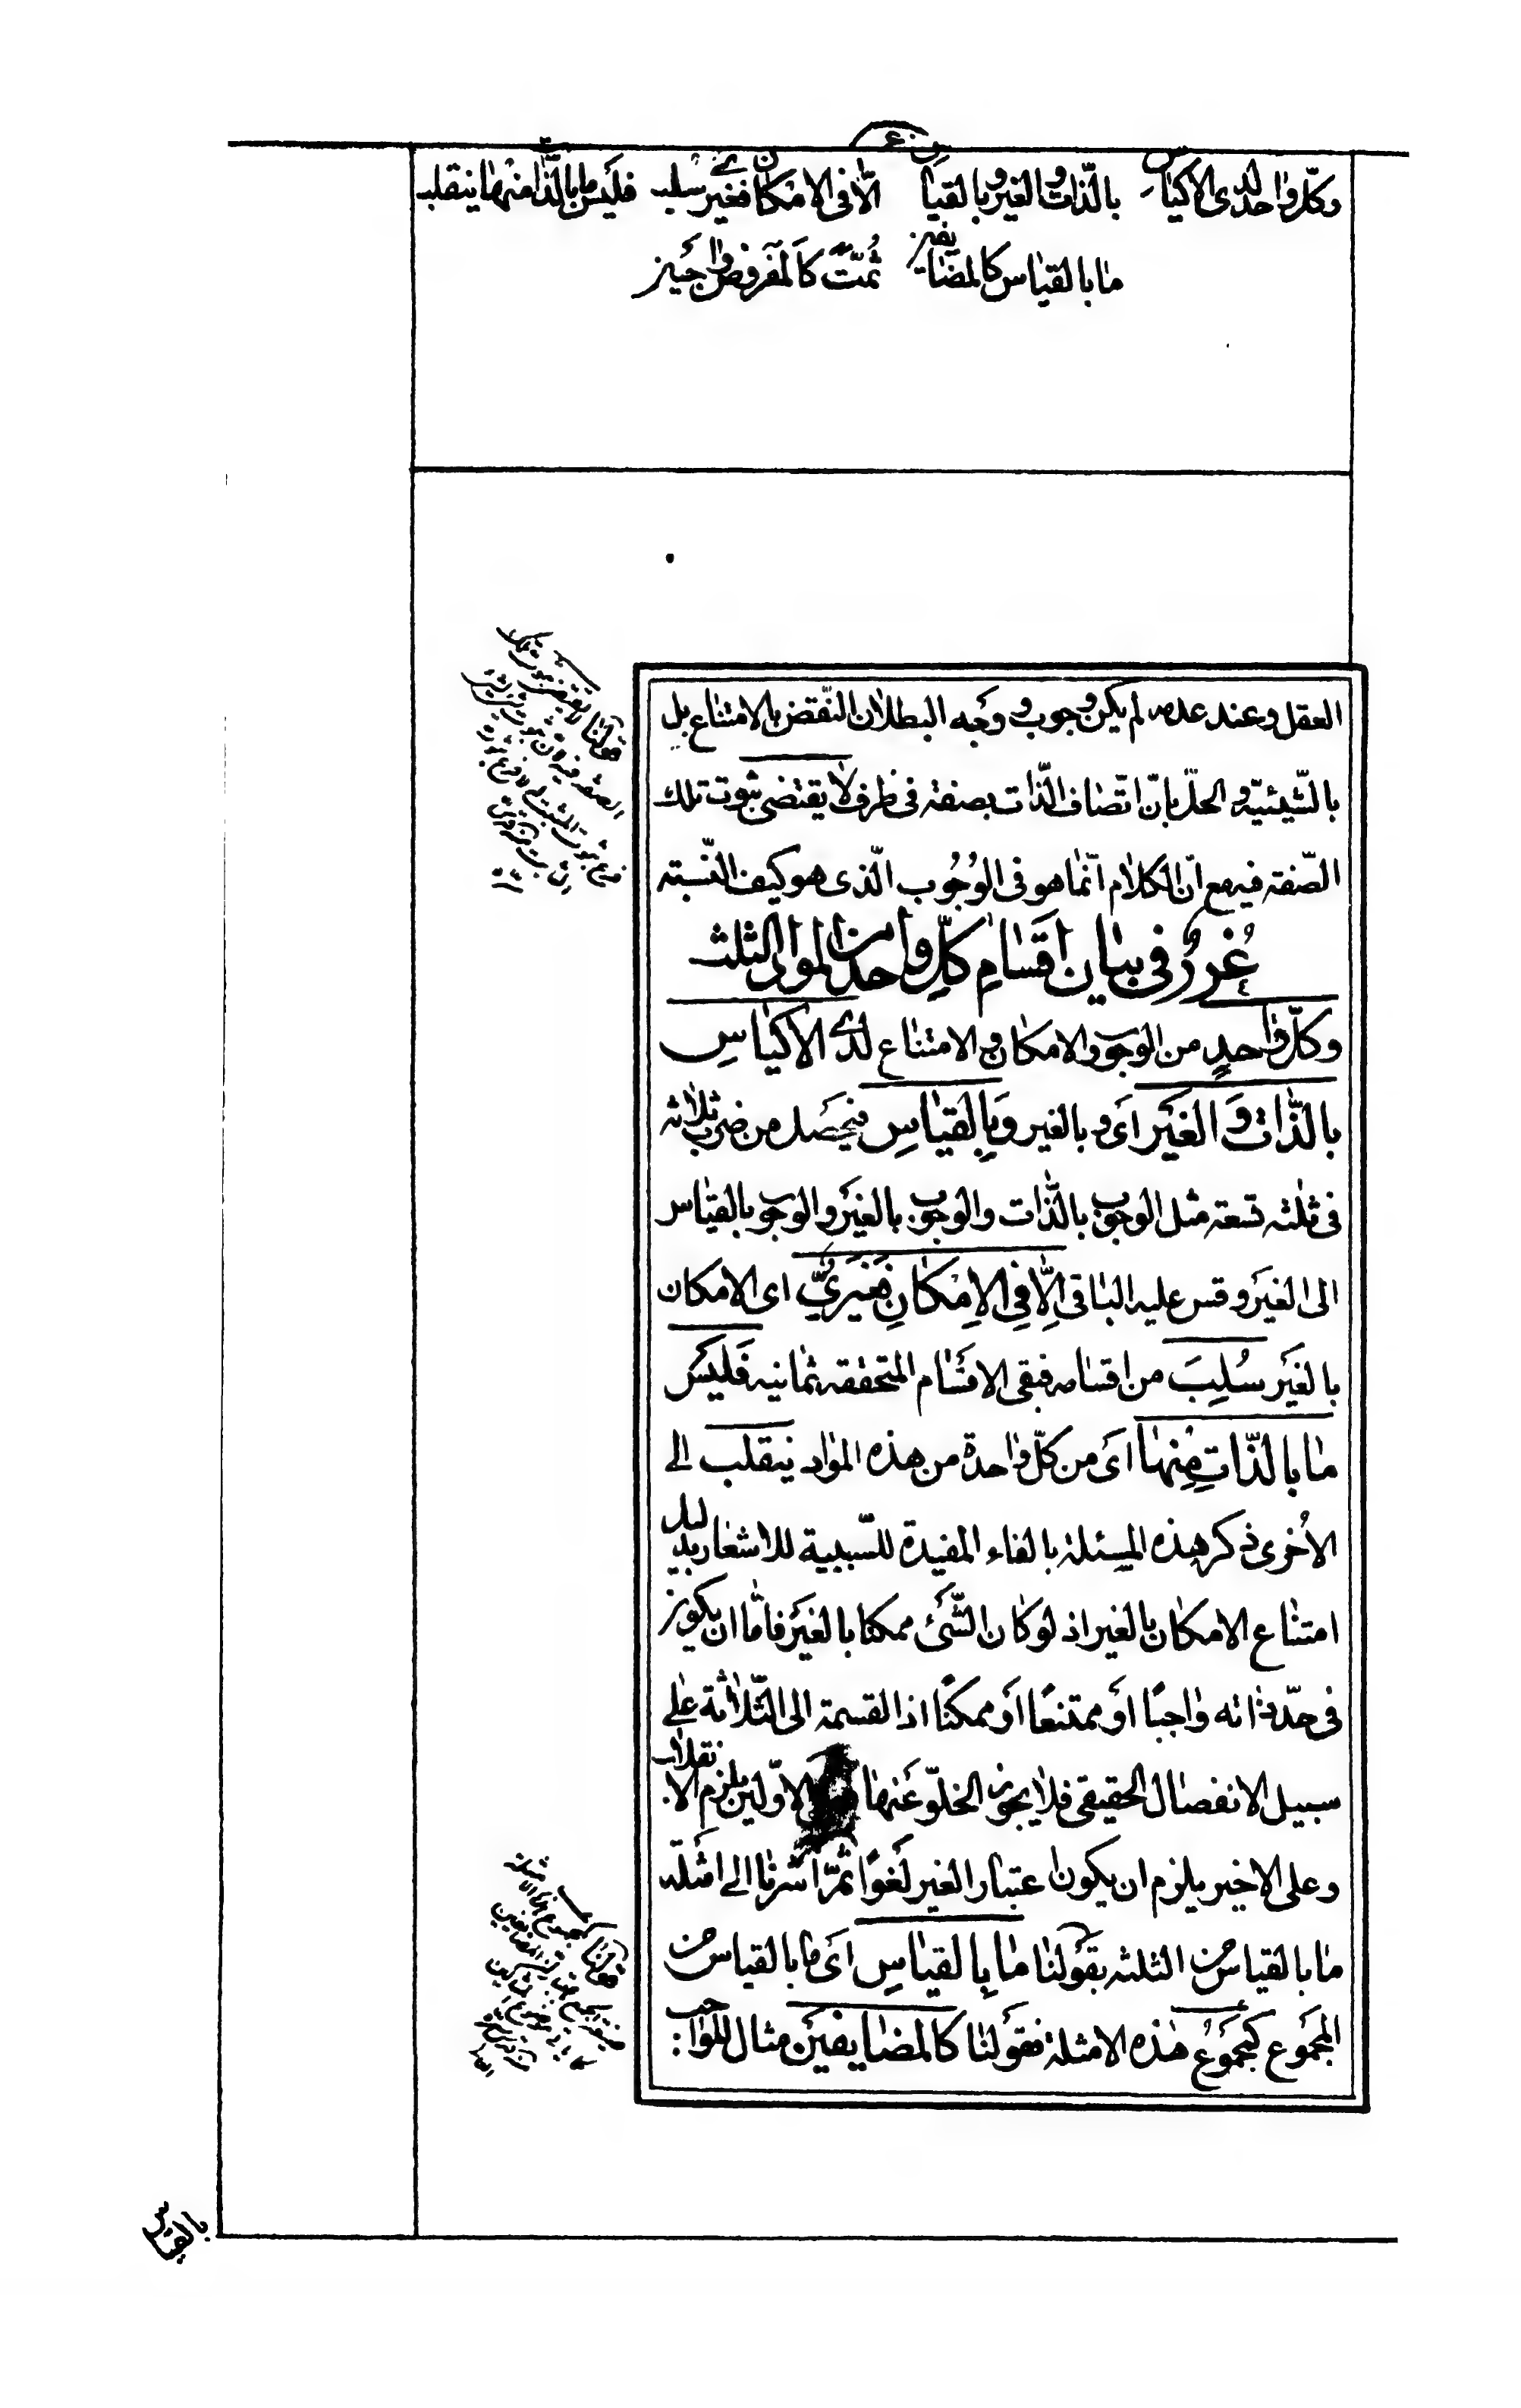 س ع ٤٠
وكلّ واحد لدى الاكياس بالذّات والغير وبالقياس الّا فى الامكان فغيرىّ سلب فليس ما بالذّات منها ينقلب
ما بالقياس كالمضايفين ثُمّت كالمفروض واجبين
العقل وعند عدمه لم يكن وجوب ووجه البطلان النّقض بالامتناع بل
بالشّيئيّة والحلّ بانّ اتّصاف الذّات بصفة فى ظرف لا يقتضى ثبوت تلك
الصّفة فيه مع انّ الكلام انّما هو فى الوُجُوب الّذى هو كيف النّسبة
غُررٌ فى بيان اقسامِ كلّ واحد من المواد الثلث
وكلّ واحدٍ من الوجوب والامكان والامتناع لدى الاكياسِ
بالذّات وَ الغَير اى وبالغير وَبِالقياسِ فيحصل من ضرب ثلاثه
فى ثلثه تسعة مثل الوجوب بالذّات والوجوب بالغير والوجوب بالقياس
الى الغير وقس عليه الباقى الّا فِى الاِمْكانِ فغيرىٌّ اى الامكان
بالغير سُلِبَ من اقسامه فبقى الاقسام المتحققه ثمانيه فَلَيسَ
ما بالذّاتِ مِنها اى من كلّ واحدة من هذه المواد ينقلب الى
الاُخرى ذكر هذه المسئلة بالفاء المفيدة للسّببية للاشعار بدليل
امتناع الامكان بالغير اذ لو كان الشّئ ممكنا بالغير فامّا ان يكون
فى حدّ ذاته واجبًا اَو ممتنعًا اَو ممكنًا اذ القسمة الى الثّلاثة على
سبيل الانفصال الحقيقى فلا يجوز الخلوّ عنها الاوّلين يلزم الانقلاب
وعلى الاخير يلزم ان يكون اعتبار الغير لغوًا ثمّ اشرنا الى امثلة
ما بالقياس من الثلثه بقولنا ما بِالقياسِ اى ما بالقياس من
المجموع كمجموع هذه الامثلة فقولنا كالمضايفَين مثال للواجب:
قولنا لا يقتضى ثبوت تلك
قولنا كمجموع هذه الامثلة
بالقياس